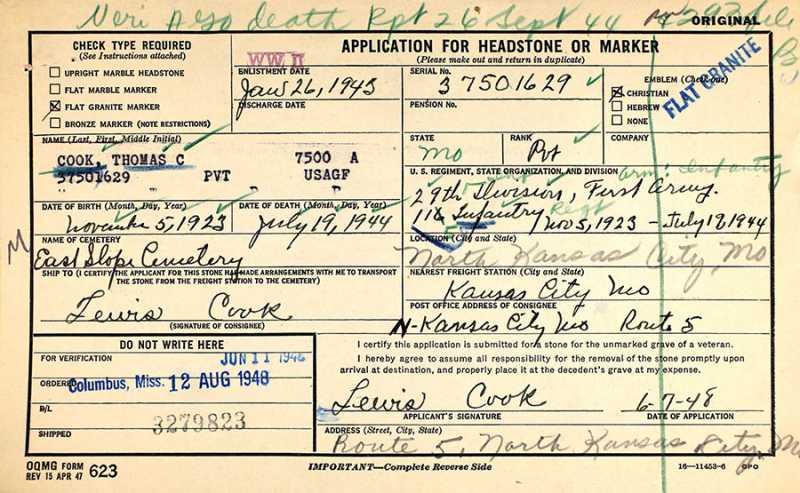 Veri AGO death Rpt 26 Sept 44
ORIGINAL
CHECK TYPE REQUIRED
(See Instructions attached)
UPRIGHT MARBLE HEADSTONE
FLAT MARBLE MARKER
FLAT GRANITE MARKER
BRONZE MARKER (NOTE RESTRICTIONS)
WW II
ENLISTMENT DATE
Jan 26, 1943
DISCHARGE DATE
APPLICATION FOR HEADSTONE OR MARKER
(Please make out and return in duplicate)
SERIAL No.
37501629
PENSION No.
EMBLEM (Check one)
CHRISTIAN
HEBREW
NONE
FLAT GRANITE
NAME (Last, First, Middle Initial)
COOK, THOMAS C 7500 A
37501629 PVT USAGF
STATE
Mo
RANK
Pvt
COMPANY
U.S. REGIMENT, STATE ORGANIZATION, AND DIVISION
arm: Infantry
29th Division, First Army.
116 Infantry Regt Nov 5, 1923 - July 19, 1944
DATE OF BIRTH (Month, Day, Year)
November 5, 1923
DATE OF DEATH (Month, Day, Year)
July 19, 1944
M
NAME OF CEMETERY
East Slope Cemetery
LOCATION (City and State)
North Kansas City, Mo
SHIP TO (I CERTIFY THE APPLICANT FOR THIS STONE HAS MADE ARRANGEMENTS WITH ME TO TRANSPORT THE STONE FROM THE FREIGHT STATION TO THE CEMETERY)
Lewis Cook
(SIGNATURE OF CONSIGNEE)
NEAREST FREIGHT STATION (City and State)
Kansas City Mo
POST OFFICE ADDRESS OF CONSIGNEE
N-Kansas City Mo Route 5
DO NOT WRITE HERE
FOR VERIFICATION
JUN 11 1948
ORDERED
Columbus, Miss. 12 AUG 1948
B/L
3279823
SHIPPED
I certify this application is submitted for a stone for the unmarked grave of a veteran.
I hereby agree to assume all responsibility for the removal of the stone promptly upon arrival at destination, and properly place it at the decedent's grave at my expense.
Lewis Cook 6-7-48
APPLICANT'S SIGNATURE DATE OF APPLICATION
ADDRESS (Street, City, State)
Route 5, North Kansas City, Mo
OQMG FORM
REV 15 APR 47 623
IMPORTANT—Complete Reverse Side
16—11453-6 GPO